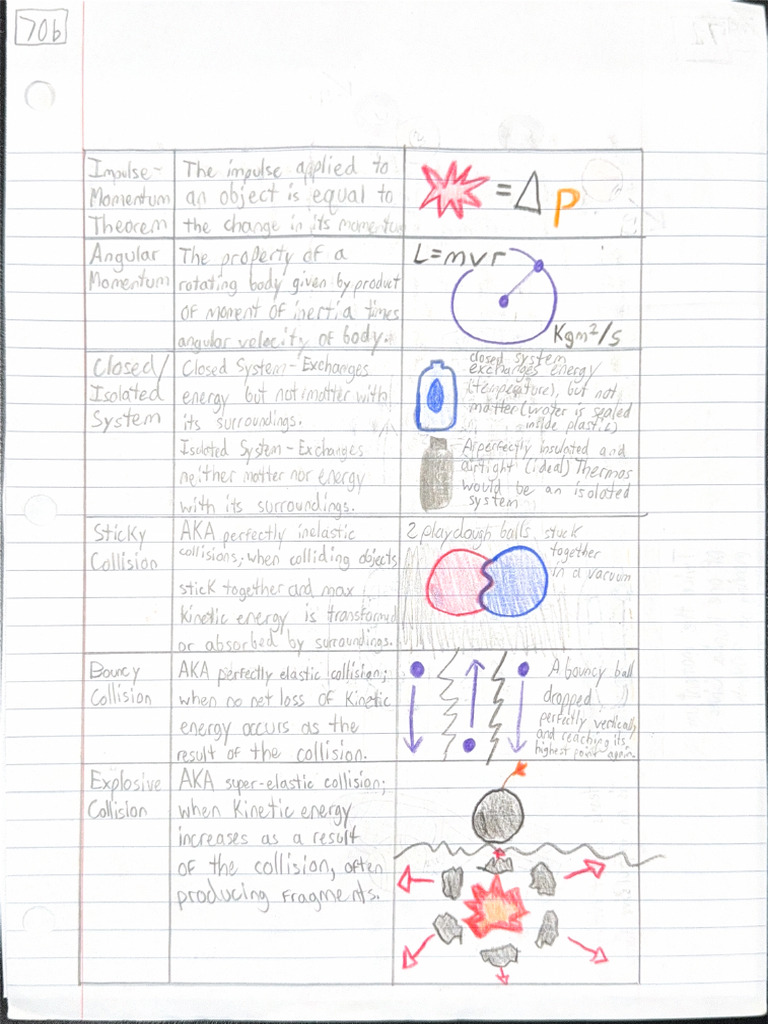 70b
Impulse-
Momentum
Theorem
The impulse applied to
an object is equal to
the change in its momentum
= Δ P
Angular
Momentum
The property of a
rotating body given by product
of moment of inertia times
angular velocity of body.
L=mvr
Kgm²/s
Closed/
Isolated
System
Closed System - Exchanges
energy but not matter with
its surroundings.
Isolated System - Exchanges
neither matter nor energy
with its surroundings.
closed system
exchanges energy
(temperature), but not
matter (water is sealed
inside plastic)
A perfectly insulated and
airtight (ideal) Thermos
would be an isolated
system
Sticky
Collision
AKA perfectly inelastic
collisions; when colliding objects
stick together and max
kinetic energy is transformed
or absorbed by surroundings.
2 playdough balls, stuck
together
in a vacuum
Bouncy
Collision
AKA perfectly elastic collision;
when no net loss of Kinetic
energy occurs as the
result of the collision.
A bouncy ball
dropped
perfectly vertically
and reaching its
highest point again
Explosive
Collision
AKA super-elastic collision;
when Kinetic energy
increases as a result
of the collision, often
producing fragments.